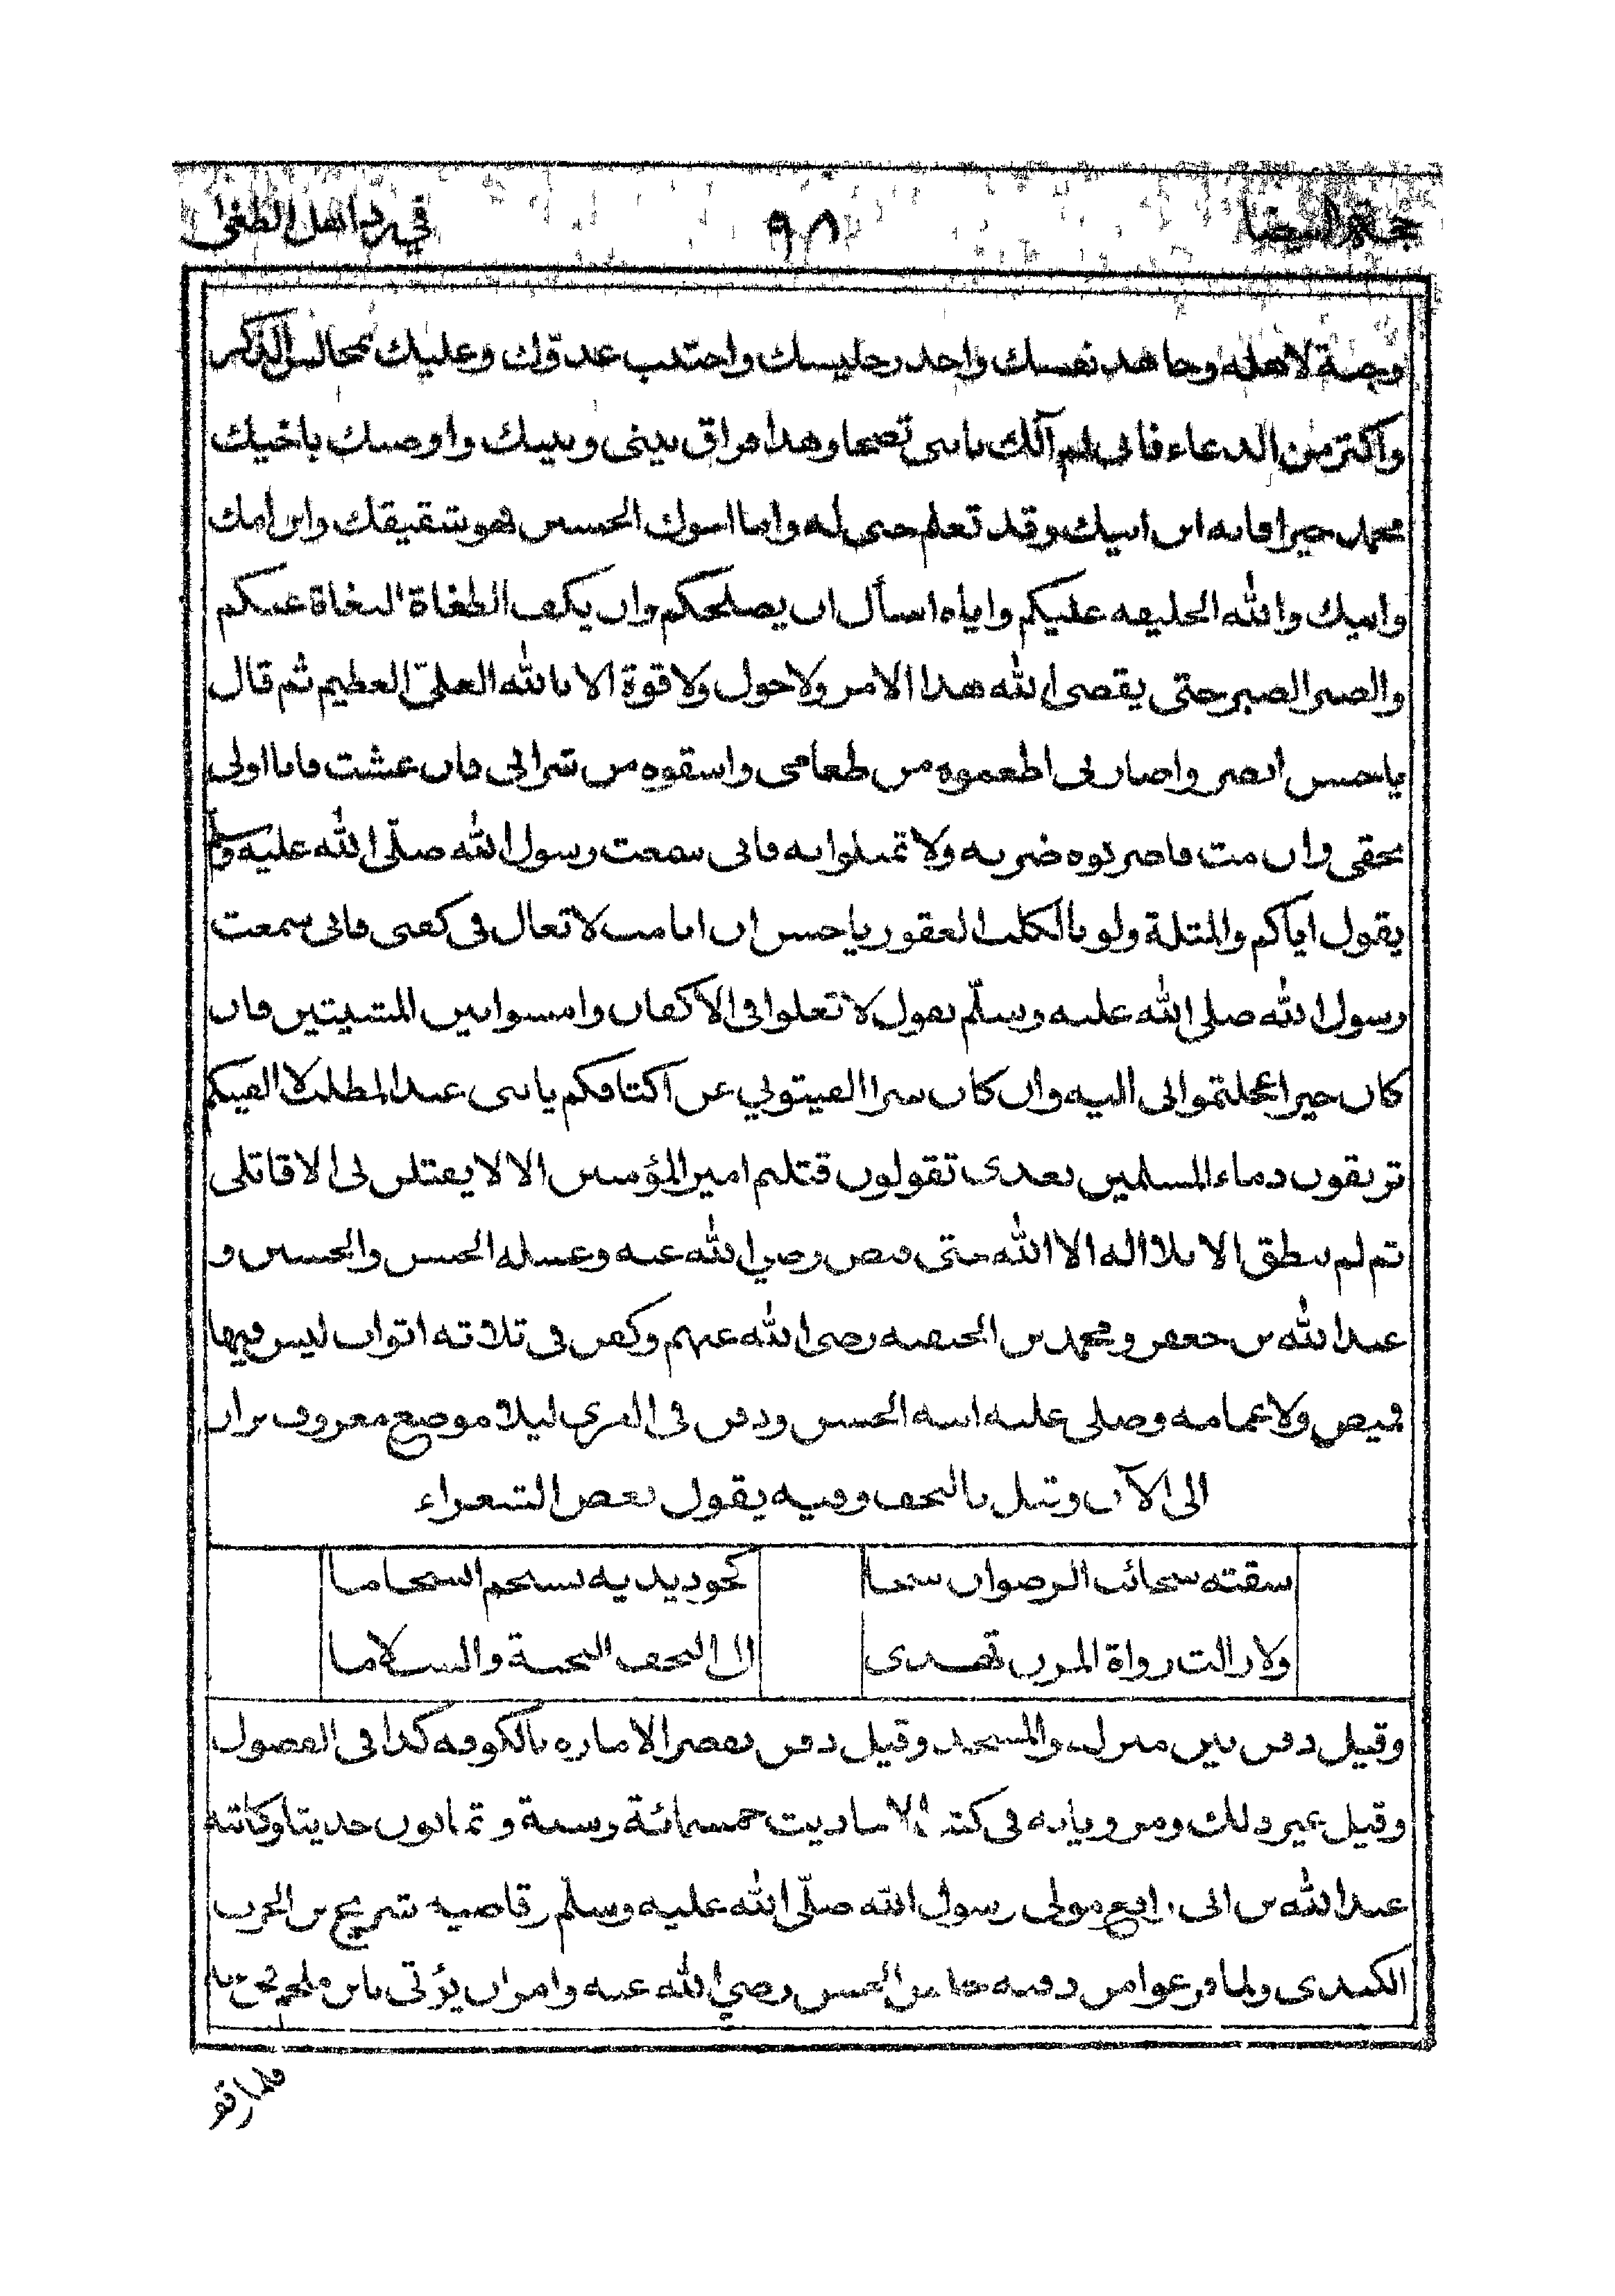 حجة البيضا ٩٨ في رد اهل الطغى
وجنة لاهله وجاهد نفسك واحذر جليسك واجتنب عدوك وعليك بمجالس الذكر
واكثر من الدعاء فاني لم آلك يابني نصحا وهذا فراق بيني وبينك واوصيك باخيك
محمد خيرا فانه ابن ابيك وقد تعلم حبي له واما اخوك الحسين فهو شقيقك وابن امك
وابيك والله الخليفه عليكم واياه اسأل ان يصلحكم وان يكف الطغاة البغاة عنكم
والصبر الصبر حتى يقضي الله هذا الامر ولا حول ولا قوة الا بالله العليّ العظيم ثم قال
ياحسن ابصروا ضاربي اطعموه من طعامي واسقوه من شرابي فان عشت فانا اولى
بحقي وان مت فاضربوه ضربه ولا تمثلوا به فاني سمعت رسول الله صلّى الله عليه وسلم
يقول اياكم والمثلة ولو بالكلب العقور ياحسن ان انا مت لا تغال في كفني فاني سمعت
رسول الله صلى الله عليه وسلّم يقول لا تغلوا في الاكفان وامشوا بين المشيتين فان
كان خيرا عجلتموالى اليه وان كان شرا القيتوني عن اكتافكم يا بني عبد المطلب لا الفيكم
تريقون دماء المسلمين بعدي تقولون قتلتم امير المؤمنين الا لا يقتلن لي الا قاتلي
ثم لم ينطق الا بلا اله الا الله حتى قبض رضي الله عنه وغسله الحسن والحسين و
عبد الله بن جعفر ومحمد بن الحنفيه رضي الله عنهم وكفن في ثلاثه اثواب ليس فيها
قميص ولا عمامه وصلى عليه ابنه الحسن ودفن في الغري ليلا موضع معروف يزار
الى الآن وقيل بالنجف وفيه يقول بعض الشعراء
سقته سحائب الرضوان سحا كجود يديه ينسجم انسجاما
ولا زالت رواة المزن تهدى الى النجف التحية والسلاما
وقيل دفن بين منزله والمسجد وقيل دفن بقصر الاماره بالكوفه كذا في الفصول
وقيل بغير ذلك ومروياته في كتب الاحاديث خمسمائة وستة وثمانون حديثا وكاتبه
عبد الله بن ابي رافع مولى رسول الله صلّى الله عليه وسلّم وقاضيه شريح بن الحرث
الكندي ولما فرغوا من دفنه جلس الحسن رضي الله عنه وامر ان يؤتى بابن ملجم فجيء به
فلما وقف